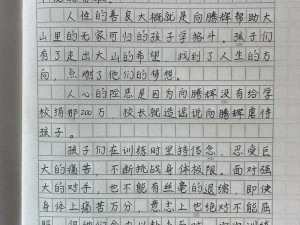 人性的善良大概就是向腾辉帮助大
山里的无家可归的孩子学格斗。孩子们
有了走出大山的希望,找到了人生的方
向,点燃了他们的梦想。
人心的险恶是因为向腾辉没有给学
校捐那200万,校长就造谣说向腾辉虐待
孩子。
孩子们在训练时坚持信念,忍受巨
大的痛苦,不断挑战身体极限。面对强
大的对手,也不能有丝毫的退缩,即使
身体上痛苦万分,意志上也绝对不能屈